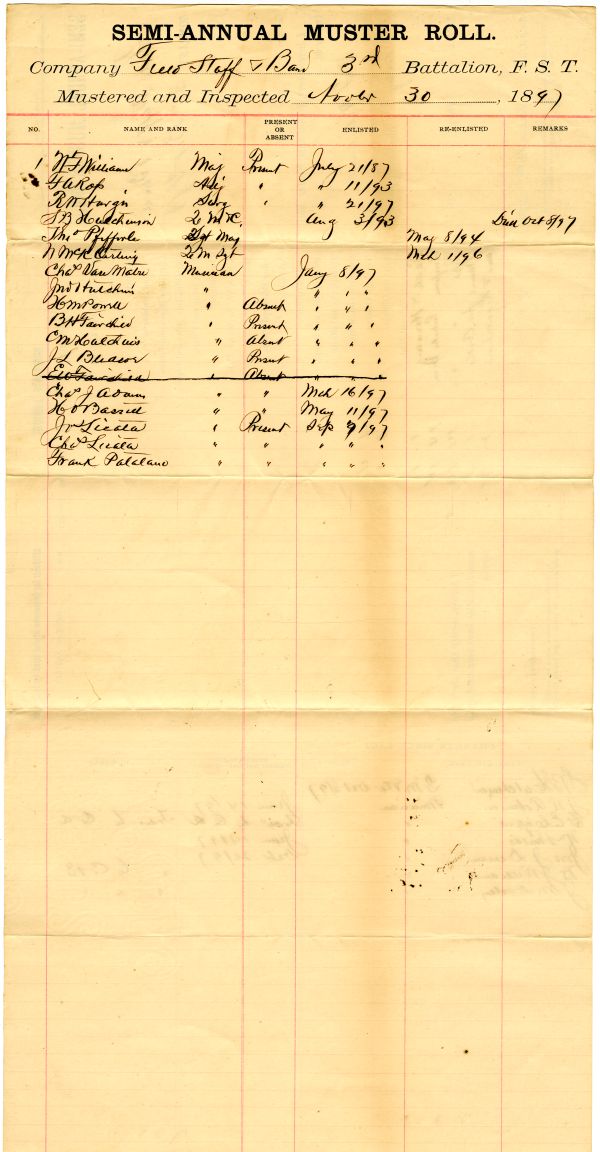 SEMI-ANNUAL MUSTER ROLL.
Company Field Staff & Band 3rd Battalion, F. S. T.
Mustered and Inspected Novbr 30, 1897
NO. NAME AND RANK PRESENT OR ABSENT ENLISTED RE-ENLISTED REMARKS
1 W F William Maj Present July 21/87
F A Ross Adj " " 11/93
R W Surg " " 21/97
S B Hutchinson Q M Aug 3/93 Died Oct 8/97
Thos Sgt Maj May 8/94
N McK Q M Sgt Mch 1/96
Chas Van Matre Musician Jany 8/97
Jno Hutchins " " " "
H M Powell " Absent " " "
B H Fairchild " Present " " "
C M Hutchins " Absent " " "
J L " Present " " "
E W Fairchild " Absent " " "
Chas J Adams " " Mch 16/97
H O Bassett " " May 11/97
Jno Licata " Present Sep 7/97
Chas Licata " " " " "
Frank Patalano " " " " "